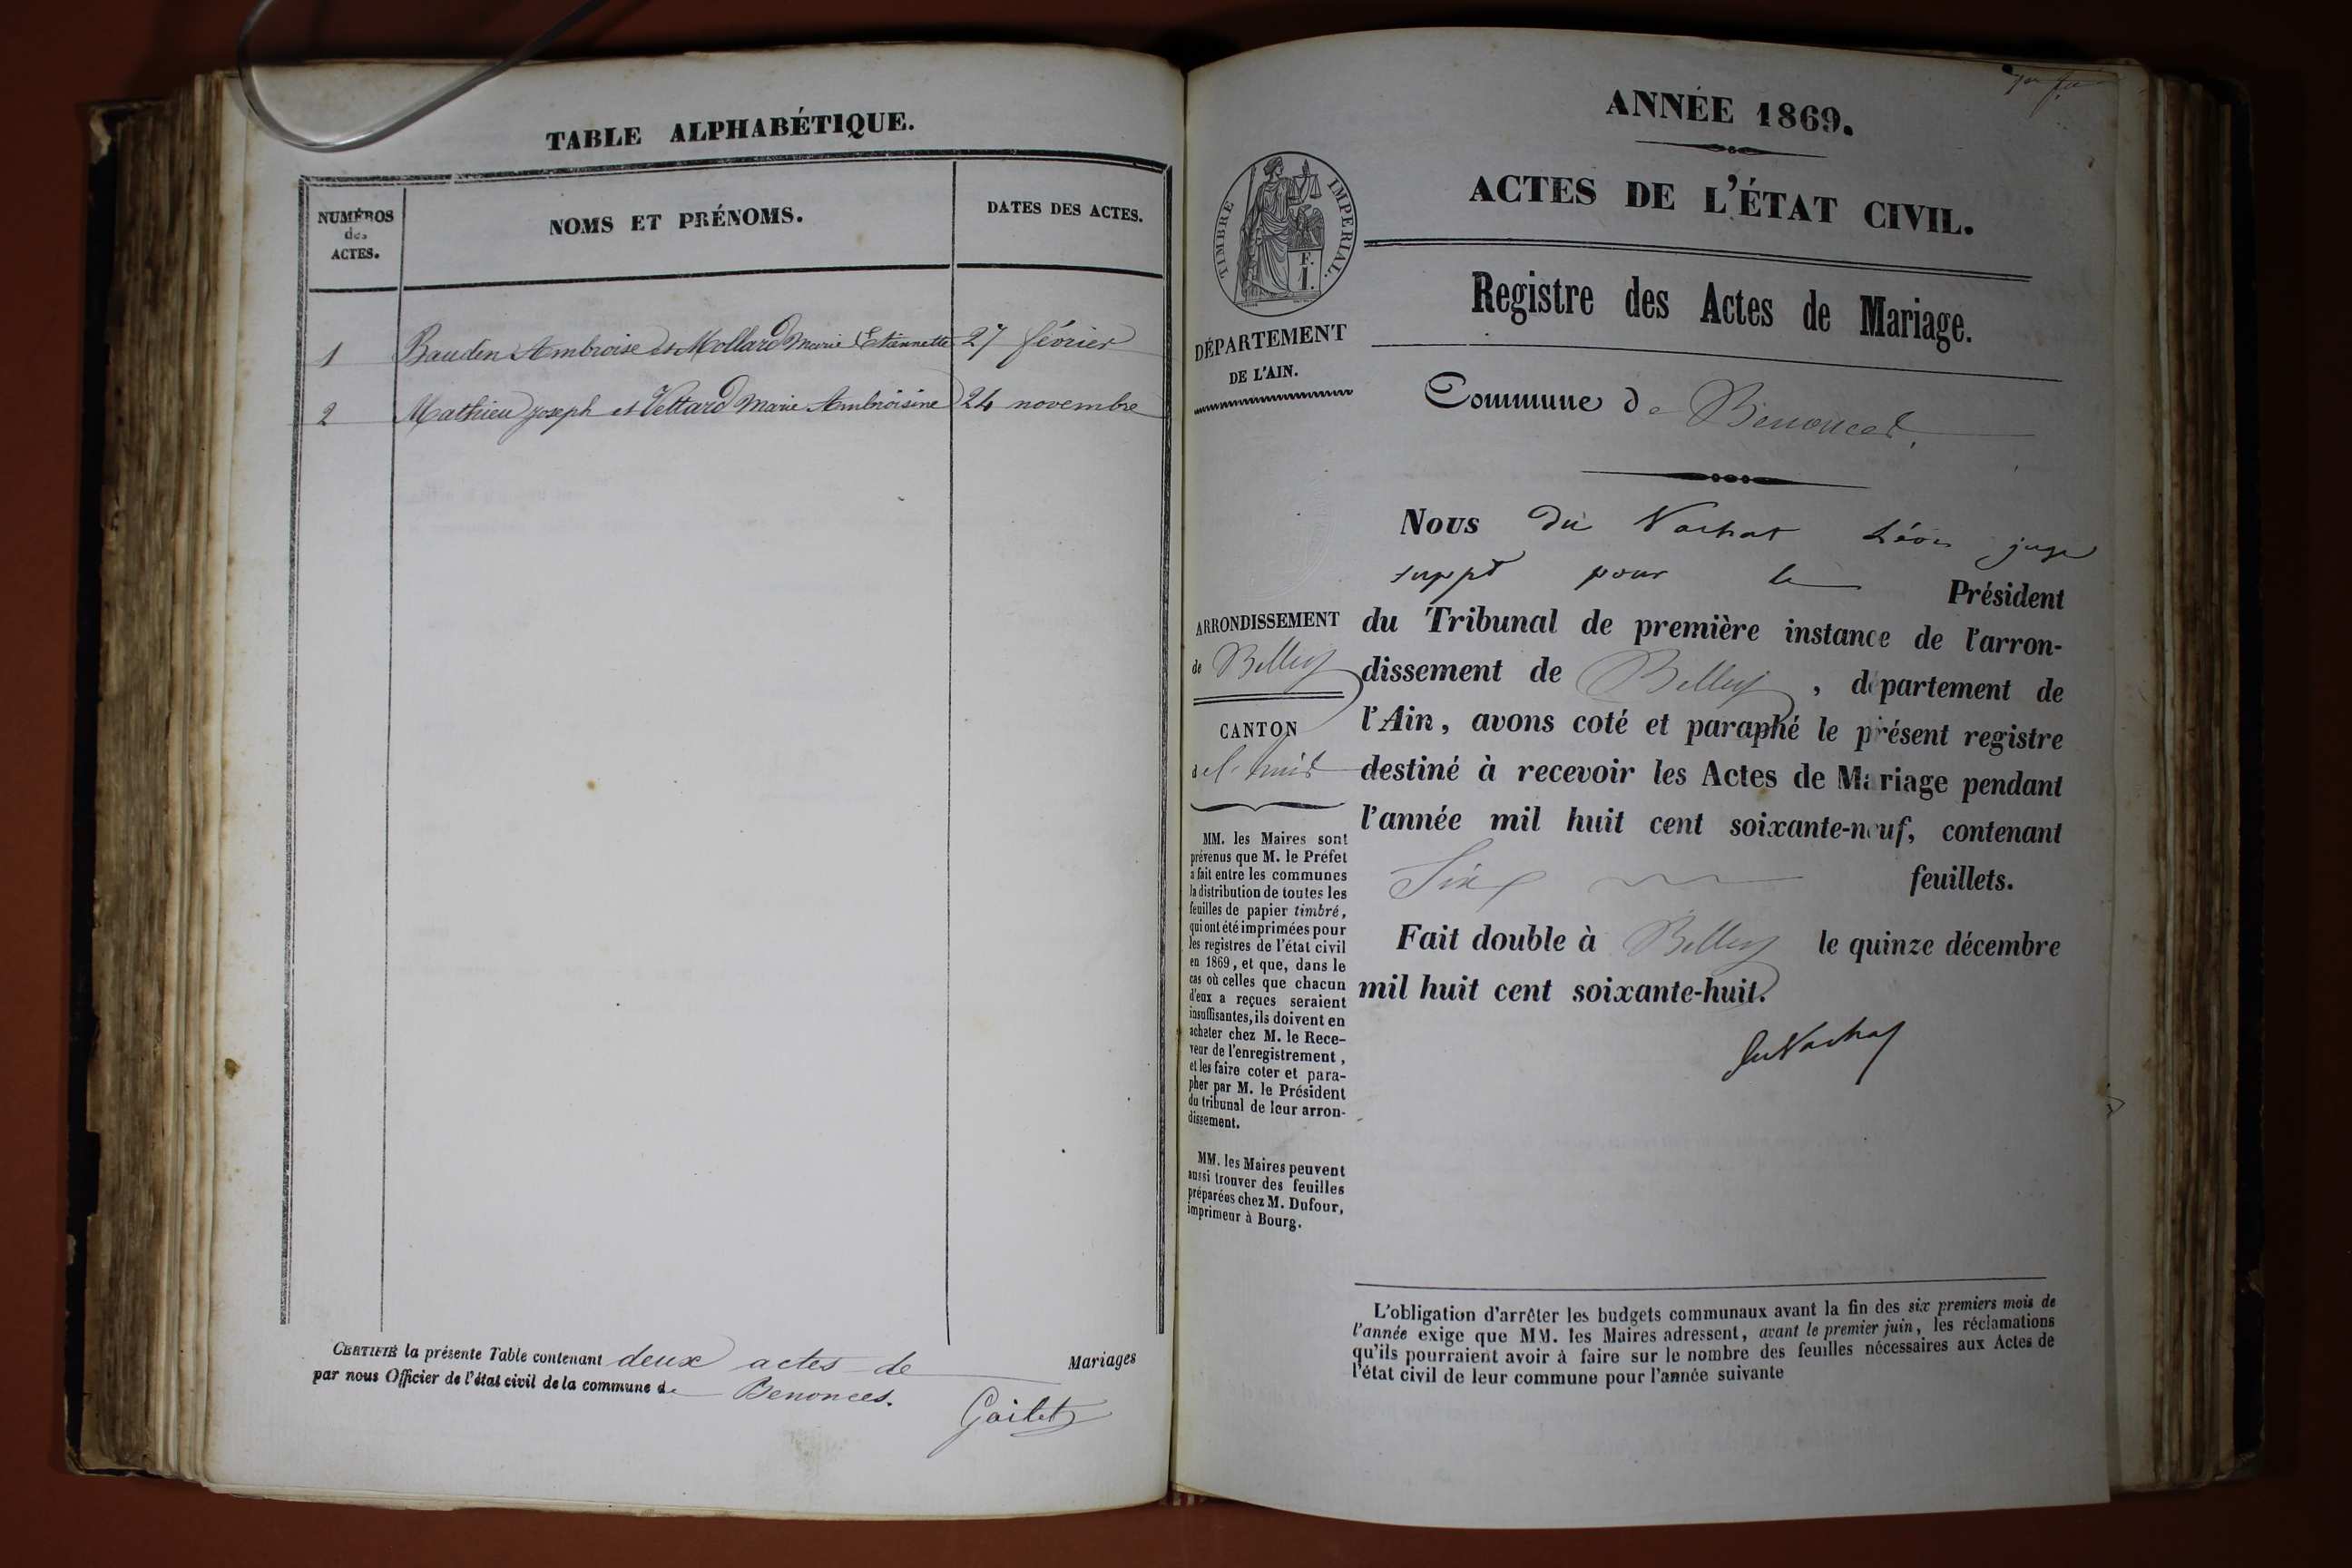 TABLE ALPHABÉTIQUE.
NUMÉROS
des
ACTES.
NOMS ET PRÉNOMS.
DATES DES ACTES.
1 Baudin Ambroise et Mollard Marie Etiennette 27 février
2 Mathieu Joseph et Vettard Marie Ambroisine 24 novembre
CERTIFIÉ la présente Table contenant deux actes de Mariages
par nous Officier de l'état civil de la commune de Benonces.
Gailet
ANNÉE 1869.
ACTES DE L'ÉTAT CIVIL.
Registre des Actes de Mariage.
Commune de Benonces.
TIMBRE IMPERIAL.
F.
1.
DÉPARTEMENT
DE L'AIN.
ARRONDISSEMENT
de Belley
CANTON
de l'huis
MM. les Maires sont
prévenus que M. le Préfet
a fait entre les communes
la distribution de toutes les
feuilles de papier timbré,
qui ont été imprimées pour
les registres de l'état civil
en 1869, et que, dans le
cas où celles que chacun
d'eux a reçues seraient
insuffisantes, ils doivent en
acheter chez M. le Rece-
veur de l'enregistrement,
et les faire coter et para-
pher par M. le Président
du tribunal de leur arron-
dissement.
MM. les Maires peuvent
aussi trouver des feuilles
préparées chez M. Dufour,
imprimeur à Bourg.
Nous du Nachat Léon juge
suppt pour le Président
du Tribunal de première instance de l'arron-
dissement de Belley, département de
l'Ain, avons coté et paraphé le présent registre
destiné à recevoir les Actes de Mariage pendant
l'année mil huit cent soixante-neuf, contenant
Six feuillets.
Fait double à Belley le quinze décembre
mil huit cent soixante-huit.
du Nachat
L'obligation d'arrêter les budgets communaux avant la fin des six premiers mois de
l'année exige que MM. les Maires adressent, avant le premier juin, les réclamations
qu'ils pourraient avoir à faire sur le nombre des feuilles nécessaires aux Actes de
l'état civil de leur commune pour l'année suivante